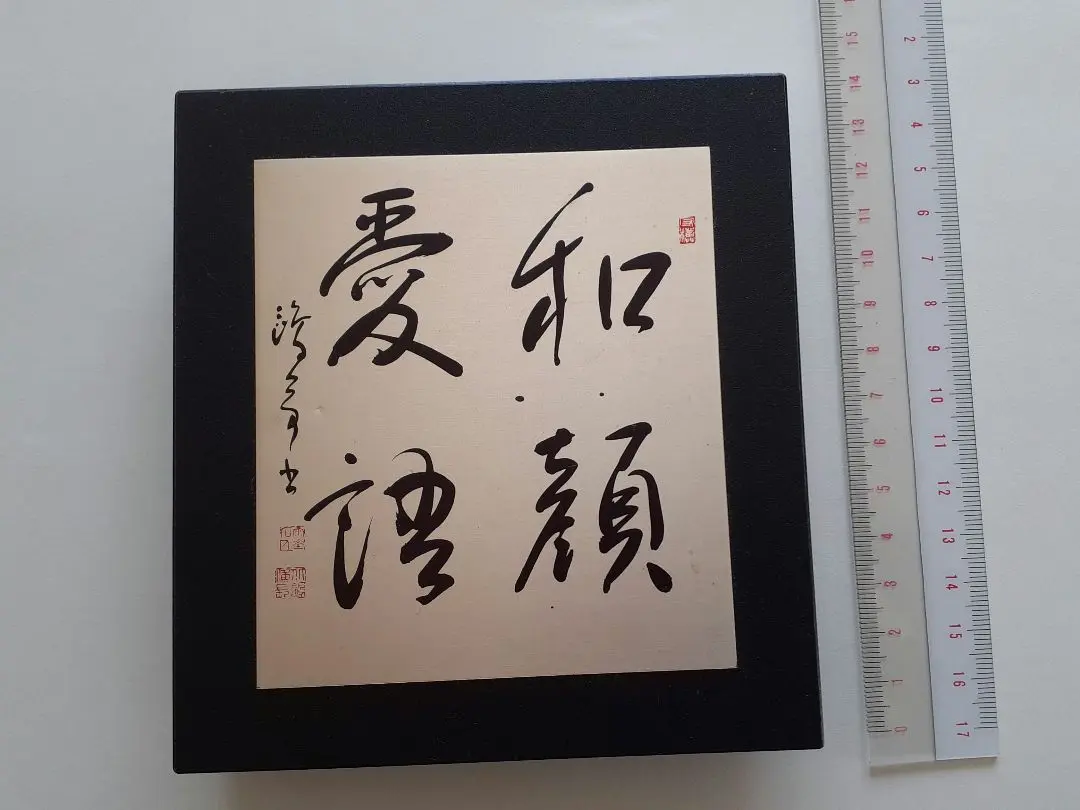 和顔
愛語
15
14
13
12
11
10
9
8
7
6
5
4
3
2
1
0
2
3
4
5
6
7
8
9
10
11
12
13
14
15
16
17